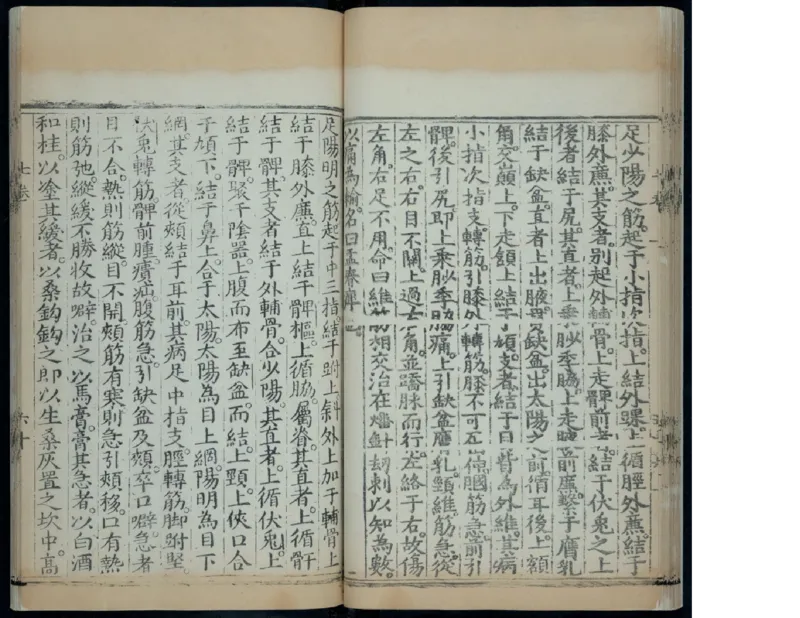 足少陽之筋。起于小指次指。上結外踝。上循脛外廉。結于
膝外廉。其支者。别起外輔骨。上走髀。前者結于伏兎之上
後者結于尻。其直者。上乗䏚季脇。上走腋前廉。繫于膺乳
結于缺盆。直者上出腋。貫缺盆。出太陽之前。循耳後。上額
角。交巔上。下走頷。上結于頄。支者結于目眥為外維。其病
小指次指。支轉筋。引膝外轉筋。膝不可屈伸。膕筋急。前引
髀。後引尻。即上乗䏚季脇痛。上引缺盆膺乳。頸維筋急。從
左之右。右目不開。上過右角。並蹻脉而行。左絡于右。故傷
左角。右足不用。命曰維筋相交。治在燔針刼刺。以知為數。
以痛為輸。名曰孟春痺也。
足陽明之筋。起于中三指。結于跗上。斜外上加于輔骨。上
結于膝外廉。直上結于髀樞。上循脇。屬脊。其直者。上循骭
結于髀。其支者。結于外輔骨。合少陽。其直者。上循伏兎。上
結于髀。聚于陰器。上腹而布。至缺盆而結。上頸。上俠口。合
于頄。下結于鼻。上合于太陽。太陽為目上網。陽明為目下
網。其支者。從頰結于耳前。其病足中指支。脛轉筋。脚跗堅
伏兎轉筋。髀前腫。㿉疝。腹筋急。引缺盆及頰。卒口噼。急者
目不合。熱則筋縱。目不開。頰筋有寒則急。引頰移口。有熱
則筋弛縱緩。不勝收故噼。治之以馬膏。膏其急者。以白酒
和桂。以塗其緩者。以桑鈎鈎之。即以生桑灰置之坎中。高
七卷
六十